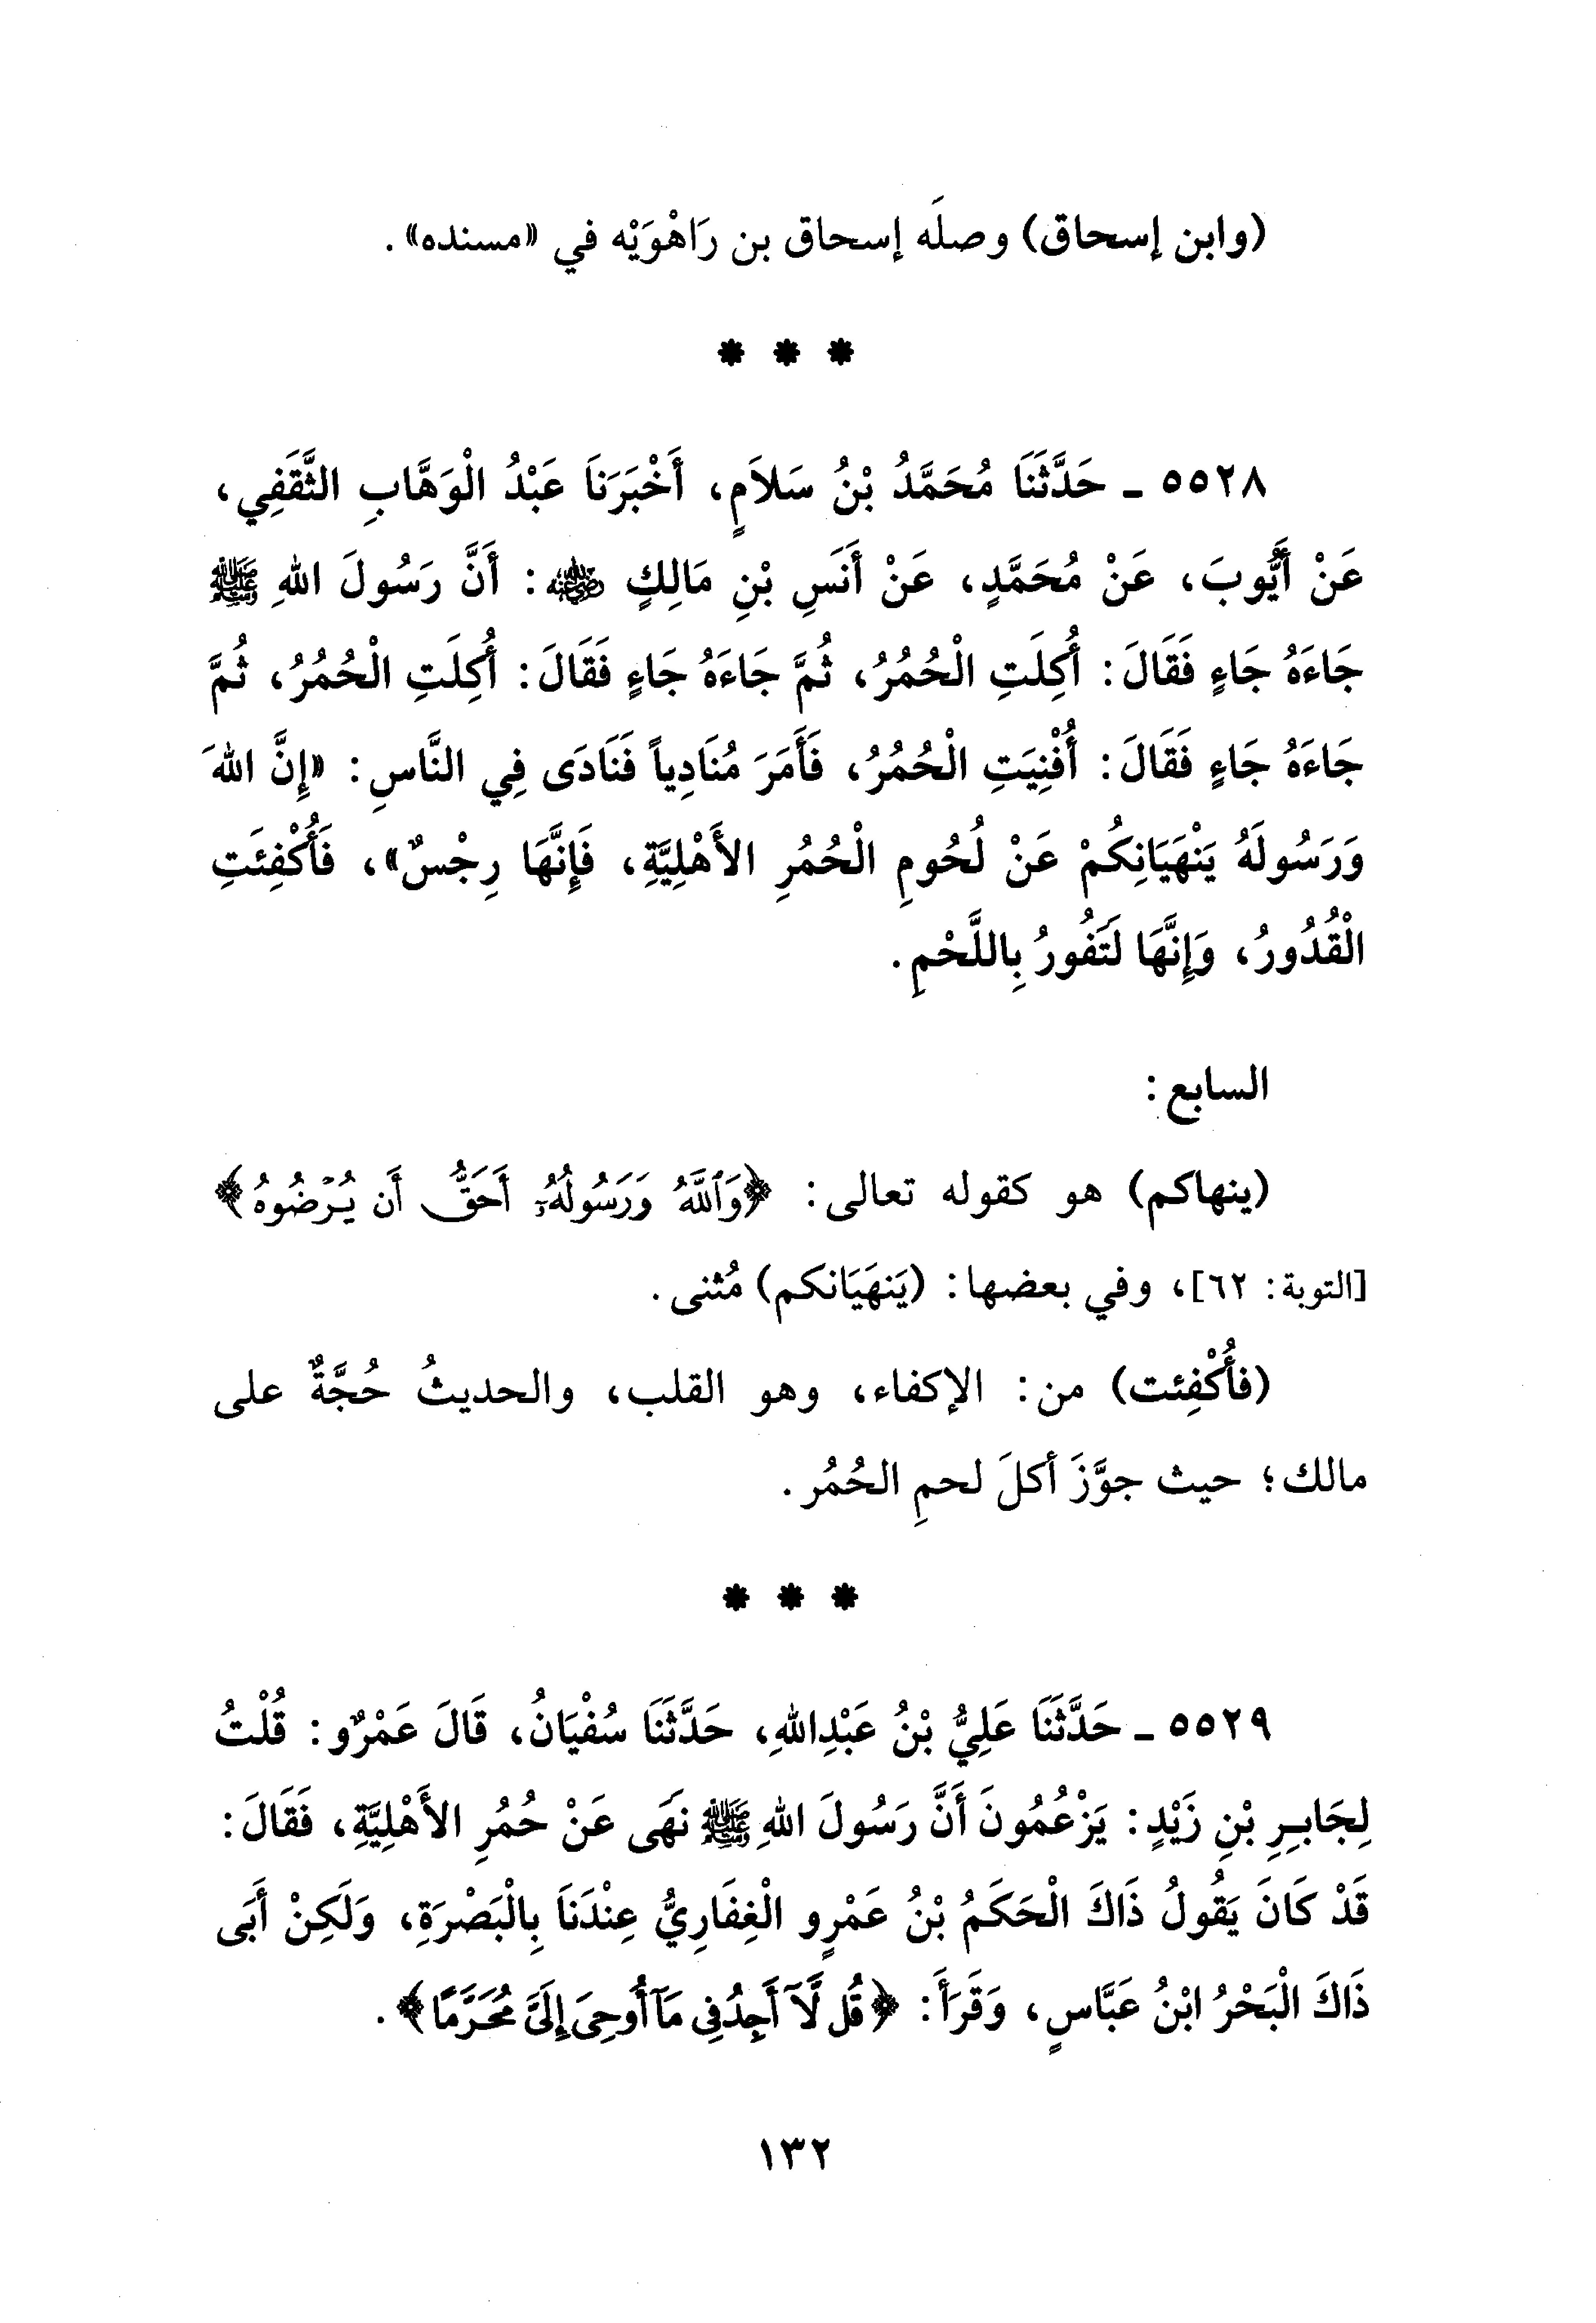 (وابن إسحاق) وصلَه إسحاق بن رَاهْوَيْه في «مسنده».
* * *
٥٥٢٨ ـ حَدَّثَنَا مُحَمَّدُ بْنُ سَلاَمٍ، أَخْبَرَنَا عَبْدُ الْوَهَّابِ الثَّقَفِي،
عَنْ أَيُّوبَ، عَنْ مُحَمَّدٍ، عَنْ أَنَسِ بْنِ مَالِكٍ رضي الله عنه: أَنَّ رَسُولَ اللهِ ﷺ
جَاءَهُ جَاءٍ فَقَالَ: أُكِلَتِ الْحُمُرُ، ثُمَّ جَاءَهُ جَاءٍ فَقَالَ: أُكِلَتِ الْحُمُرُ، ثُمَّ
جَاءَهُ جَاءٍ فَقَالَ: أُفْنِيَتِ الْحُمُرُ، فَأَمَرَ مُنَادِياً فَنَادَى فِي النَّاسِ: «إِنَّ اللهَ
وَرَسُولَهُ يَنْهَيَانِكُمْ عَنْ لُحُومِ الْحُمُرِ الأَهْلِيَّةِ، فَإِنَّهَا رِجْسٌ»، فَأُكْفِئَتِ
الْقُدُورُ، وَإِنَّهَا لَتَفُورُ بِاللَّحْمِ.
السابع:
(ينهاكم) هو كقوله تعالى: ﴿وَٱللَّهُ وَرَسُولُهُۥٓ أَحَقُّ أَن يُرْضُوهُ﴾
[التوبة: ٦٢]، وفي بعضها: (يَنهَيَانكم) مُثنى.
(فأُكْفِئت) من: الإكفاء، وهو القلب، والحديثُ حُجَّةٌ على
مالك؛ حيث جوَّزَ أكلَ لحمِ الحُمُر.
* * *
٥٥٢٩ ـ حَدَّثَنَا عَلِيُّ بْنُ عَبْدِاللهِ، حَدَّثَنَا سُفْيَانُ، قَالَ عَمْرٌو: قُلْتُ
لِجَابِرِ بْنِ زَيْدٍ: يَزْعُمُونَ أَنَّ رَسُولَ اللهِ ﷺ نَهَى عَنْ حُمُرِ الأَهْلِيَّةِ، فَقَالَ:
قَدْ كَانَ يَقُولُ ذَاكَ الْحَكَمُ بْنُ عَمْرٍو الْغِفَارِيُّ عِنْدَنَا بِالْبَصْرَةِ، وَلَكِنْ أَبَى
ذَاكَ الْبَحْرُ ابْنُ عَبَّاسٍ، وَقَرَأَ: ﴿قُل لَّآ أَجِدُ فِى مَآ أُوحِىَ إِلَىَّ مُحَرَّمًا﴾.
١٣٢